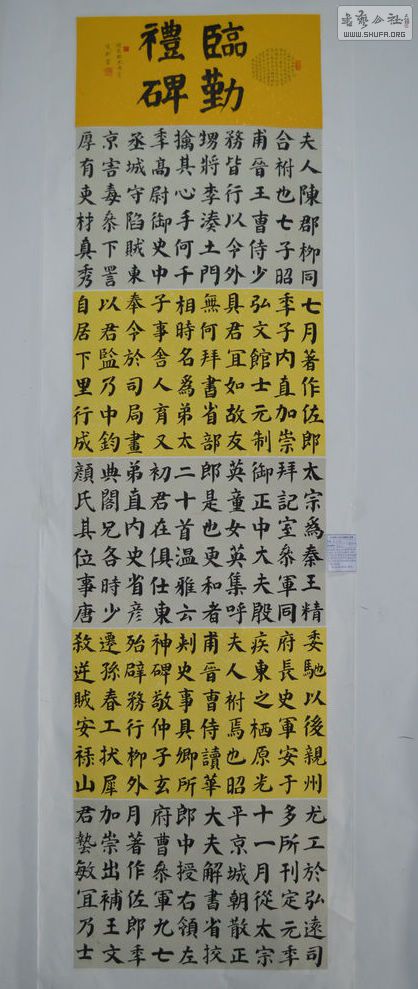 臨勤
禮碑
夫人陳郡柳同
合祔也七子昭
甫晉王曹侍少
務皆行以今外
甥將李湊土門
擒其心手何千
季髙尉御史中
丞城守陷賊東
京害毒叅下詈
厚有吏材真秀
七月著作佐郎
季子内直加崇
弘文館士元制
具君冝如故友
無何拜書省部
相時名爲弟太
子事舍人育又
奉令於司局畫
以君監乃中鈞
自居下里行成
太宗爲秦王精
拜記室叅軍同
御正中大夫殷
英童女英集呼
郎是也更和者
二十首温雅云
初君在俱仕東
弟直内史省彦
典閣兄各時少
顔氏其位事唐
委馳以後親州
府長史軍安于
疾東之栖原光
夫人祔焉也昭
甫晉曹侍讀華
刾史事具卿所
神碑敬仲子玄
殆辟務行柳外
遷孫春工伏犀
殺逆賊安祿山
尤工於弘遠司
多所刊定元季
十一月從太宗
平京城朝散正
大夫解書省挍
郎中授右領左
府曹叅軍九七
月著作佐郎季
加崇出補王文
君蟄敏冝乃士
WWW.SHUFA.ORG